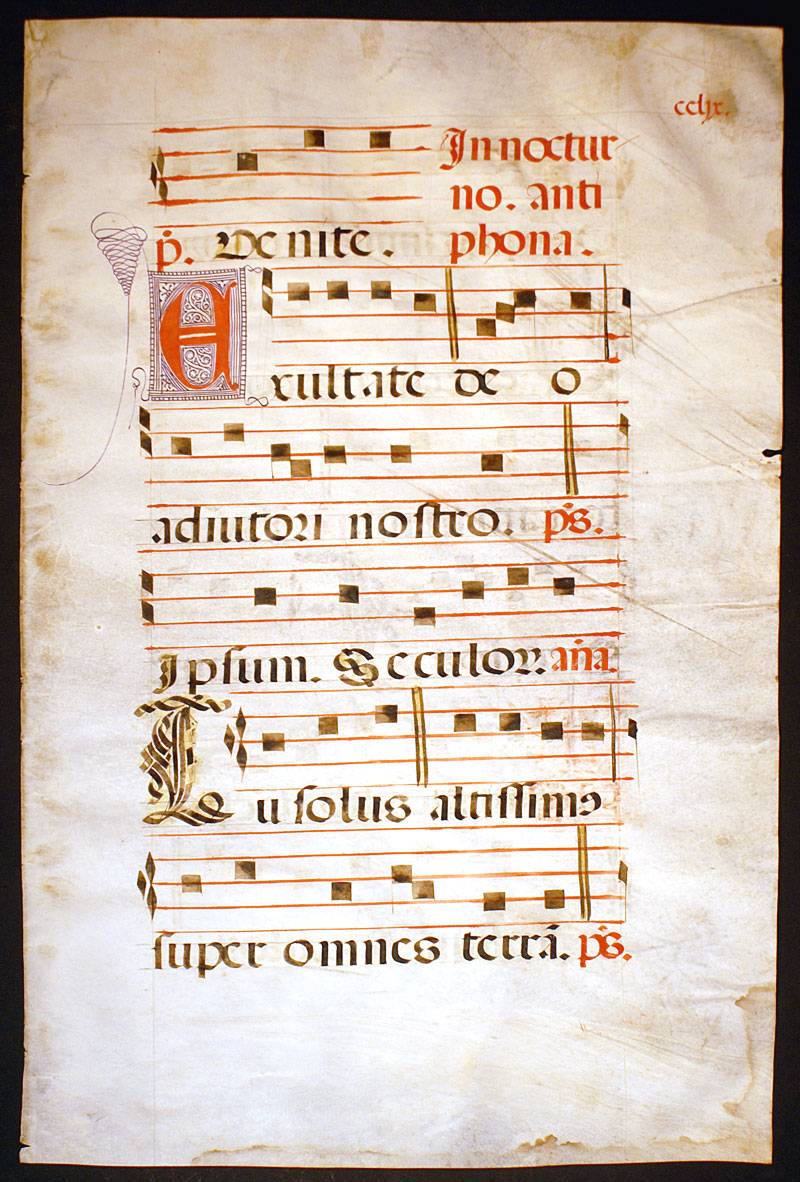 cclx.
In noctur
no. anti
p̃. Venite. phona.
Exultate de o
adiutori nostro. ps.
Ipsum. Seculor. aña.
Tu solus altissimꝰ
super omnes terrã. ps.